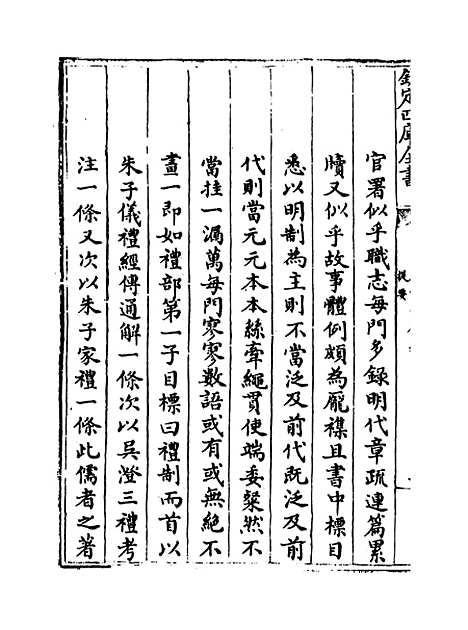 欽定四庫全書
提要
官署似乎職志每門多錄明代章疏連篇累
牘又似乎故事體例頗為龐襍且書中標目
悉以明制為主則不當泛及前代既泛及前
代則當元元本本絲牽繩貫使端委粲然不
當挂一漏萬每門寥寥數語或有或無絶不
畫一即如禮部第一子目標曰禮制而首以
朱子儀禮經傳通解一條次以吳澄三禮考
注一條又次以朱子家禮一條此儒者之著